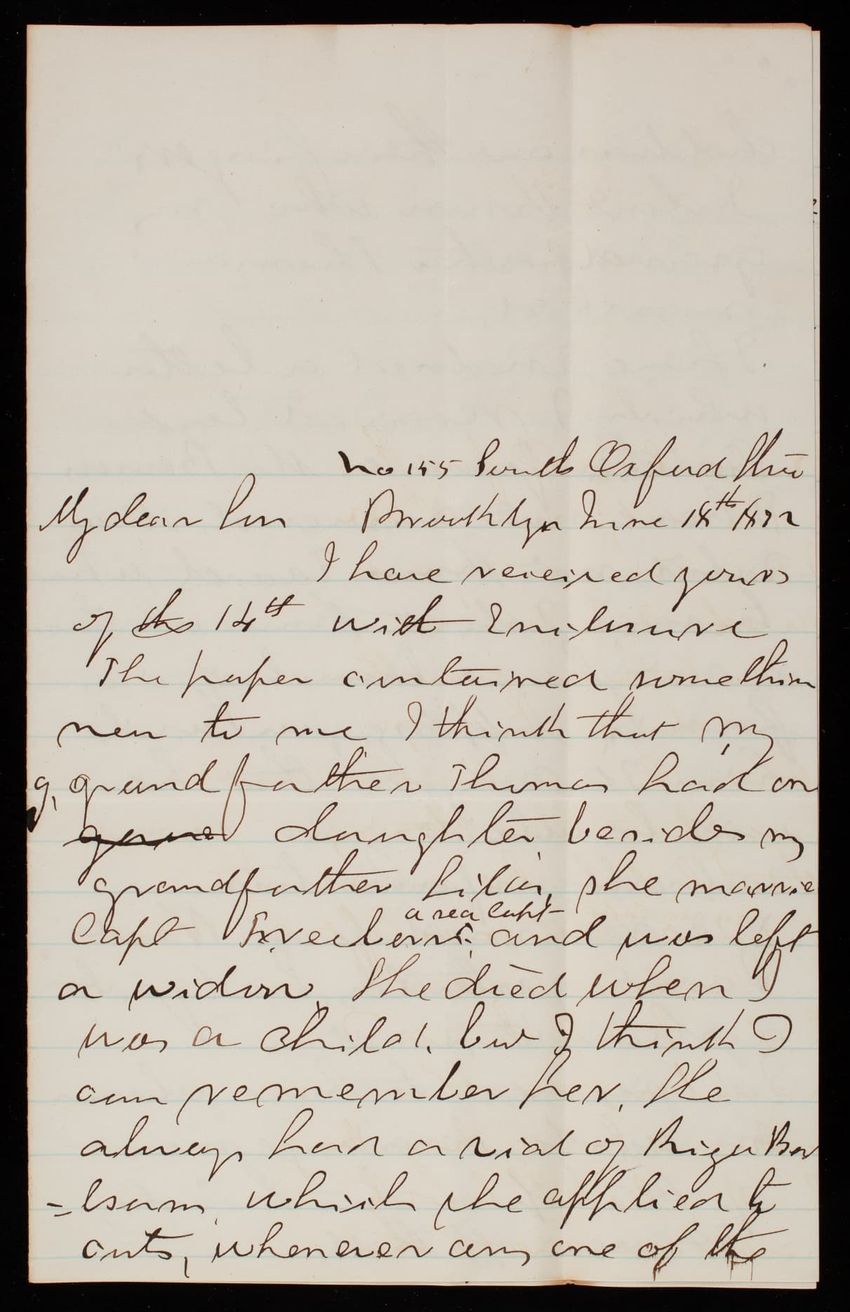 No 155 South Oxford Stree
My dear Sir Brooklyn June 18th 1872
I have received yours
of the 14th with Enclosure
The paper contained something
new to me I think that my
g, grandfather Thomas had on
daughter besides my
grandfather Silas, she marrie
Capt a sea Capt and was left
a widow, She died when I
was a child, but I think I
can remember her, She
always had a vial of Riga Bal
=lsam, which she applied to
cuts, whenever any one of the